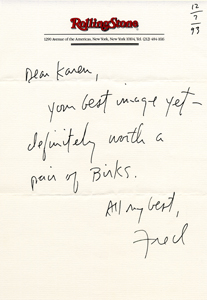 RollingStone
1290 Avenue of the Americas, New York, New York 10104, Tel. (212) 484-1616
12
7
93
Dear Karen,
your best image yet –
definitely worth a
pair of Birks.
All my best,
Fred